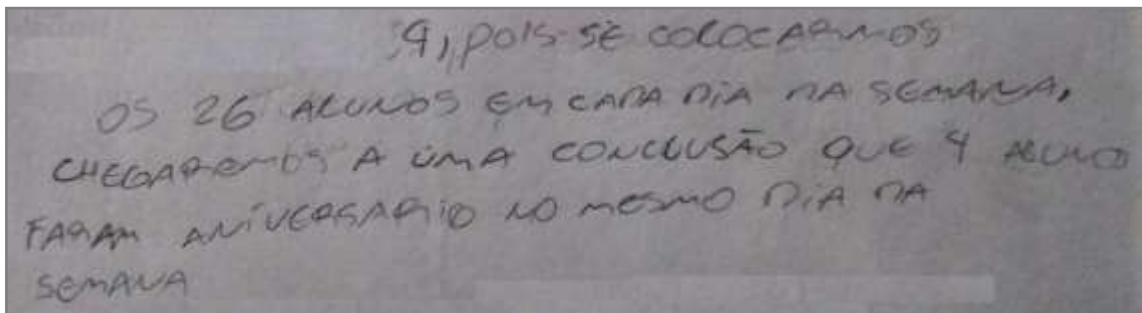 4, POIS SE COLOCARMOS
OS 26 ALUNOS EM CADA DIA DA SEMANA,
CHEGAREMOS A UMA CONCLUSÃO QUE 4 ALUNOS
FARAM ANIVERSARIO NO MESMO DIA DA
SEMANA